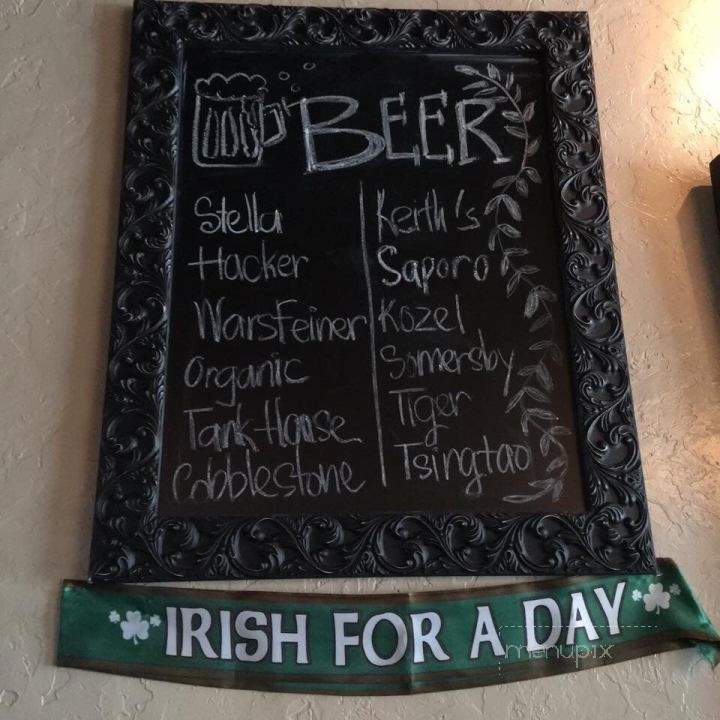 BEER
Stella
Hacker
Warsfeiner
Organic
Tank House
Cobblestone
Keith's
Saporo
Kozel
Somersby
Tiger
Tsingtao
IRISH FOR A DAY
menupix